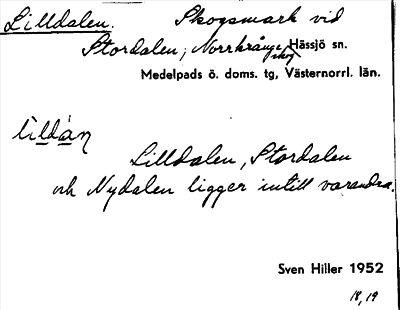 Lilldalen. Skogsmark vid
Stordalen, Norrkrånge skog, Hässjö sn.
Medelpads ö. doms. tg, Västernorrl. län.
lìldán
Lilldalen, Stordalen
och Nydalen ligger intill varandra.
Sven Hiller 1952
18, 19